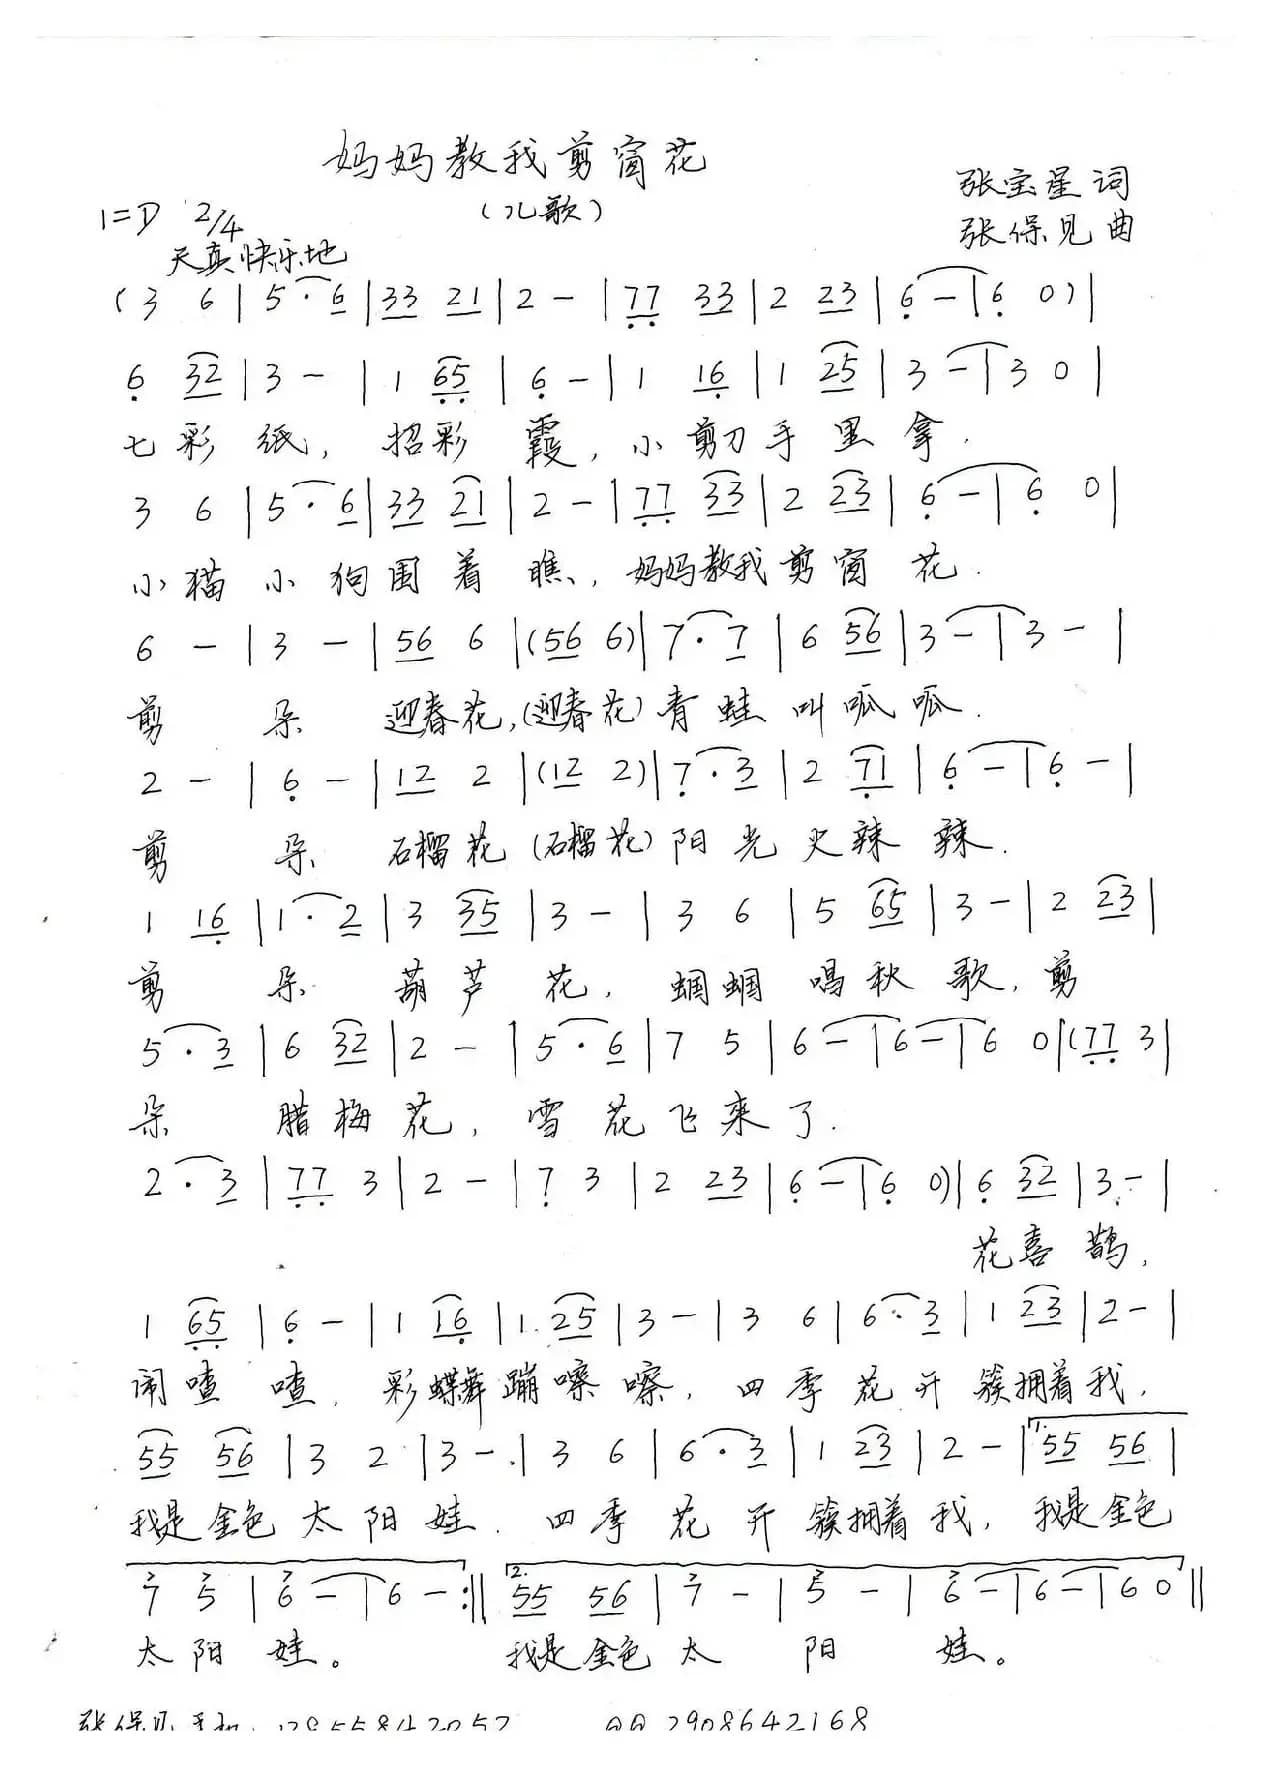 妈妈教我剪窗花
(儿歌)
张宝星词
1=D 2/4
张保见曲
天真快乐地
(3 6|5·6|33 21|2-|77 33|2 23|6-|6 0)|
6 32|3-|1 65|6-|1 16|1 25|3-|3 0|
七彩纸,招彩霞,小剪刀手里拿.
3 6|5·6|33 21|2-|77 33|2 23|6-|6 0|
小猫小狗围着瞧,妈妈教我剪窗花.
6-|3-|56 6|(56 6)|7·7|6 56|3-|3-|
剪朵迎春花,(迎春花)青蛙叫呱呱.
2-|6-|12 2|(12 2)|7·3|2 71|6-|6-|
剪朵石榴花(石榴花)阳光火辣辣.
1 16|1·2|3 35|3-|3 6|5 65|3-|2 23|
剪朵葫芦花,蝈蝈唱秋歌,剪
5·3|6 32|2-|5·6|7 5|6-|6-|6 0|(77 3|
朵腊梅花,雪花飞来了.
2·3|77 3|2-|7 3|2 23|6-|6 0)|6 32|3-|
花喜鹊,
1 65|6-|1 16|1.25|3-|3 6|6·3|1 23|2-|
闹喳喳.彩蝶舞蹦嚓嚓,四季花开簇拥着我,
55 56|3 2|3-.|3 6|6·3|1 23|2-|1.55 56|
我是金色太阳娃.四季花开簇拥着我,我是金色
7 5|6-|6-:||2.55 56|7-|5-|6-|6-|6 0||
太阳娃。我是金色太阳娃。
张保见手机:13855842052 QQ2908642168